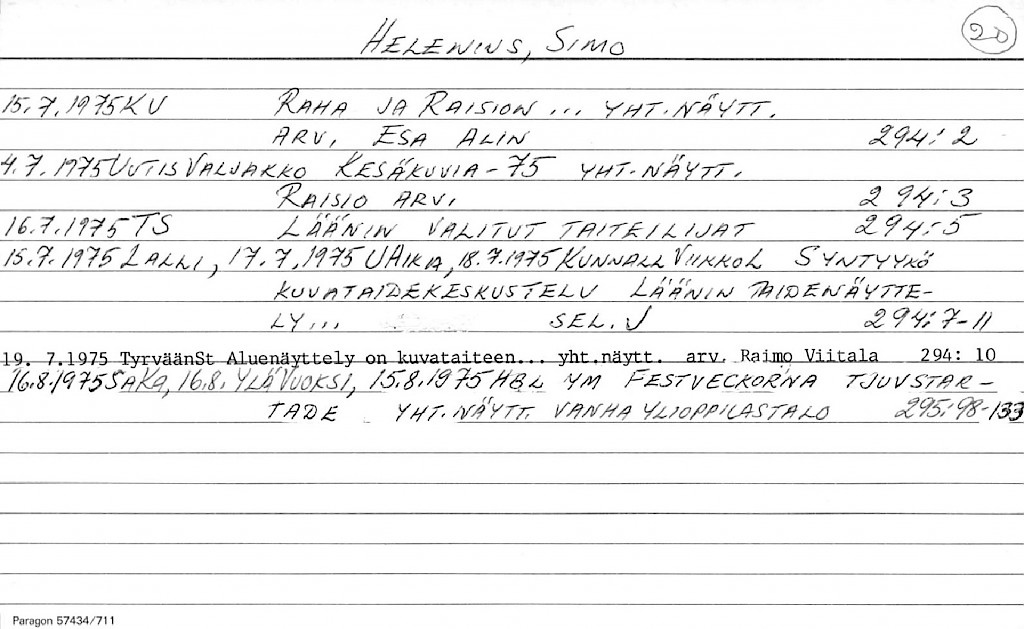 HELENIUS, SIMO
20
15.7.1975 KU RAHA JA RAISION ... YHT.NÄYTT.
ARV. ESA ALIN 294:2
4.7.1975 UUTISVALJAKKO KESÄKUVIA-75 YHT.NÄYTT.
RAISIO ARV. 294:3
16.7.1975 TS LÄÄNIN VALITUT TAITEILIJAT 294:5
15.7.1975 LALLI, 17.7.1975 UAIKA, 18.7.1975 KUNNALL VIIKKOL SYNTYYKÖ
KUVATAIDEKESKUSTELU LÄÄNIN TAIDENÄYTTE-
LY... SEL. J 294:7-11
19. 7.1975 TyrväänSt Aluenäyttely on kuvataiteen... yht.näytt. arv. Raimo Viitala 294: 10
16.8.1975 SAKA, 16.8. YLÄVUOKSI, 15.8.1975 HBL YM FESTVECKORNA TJUVSTAR-
TADE YHT.NÄYTT. VANHA YLIOPPILASTALO 295:98-133
Paragon 57434/711